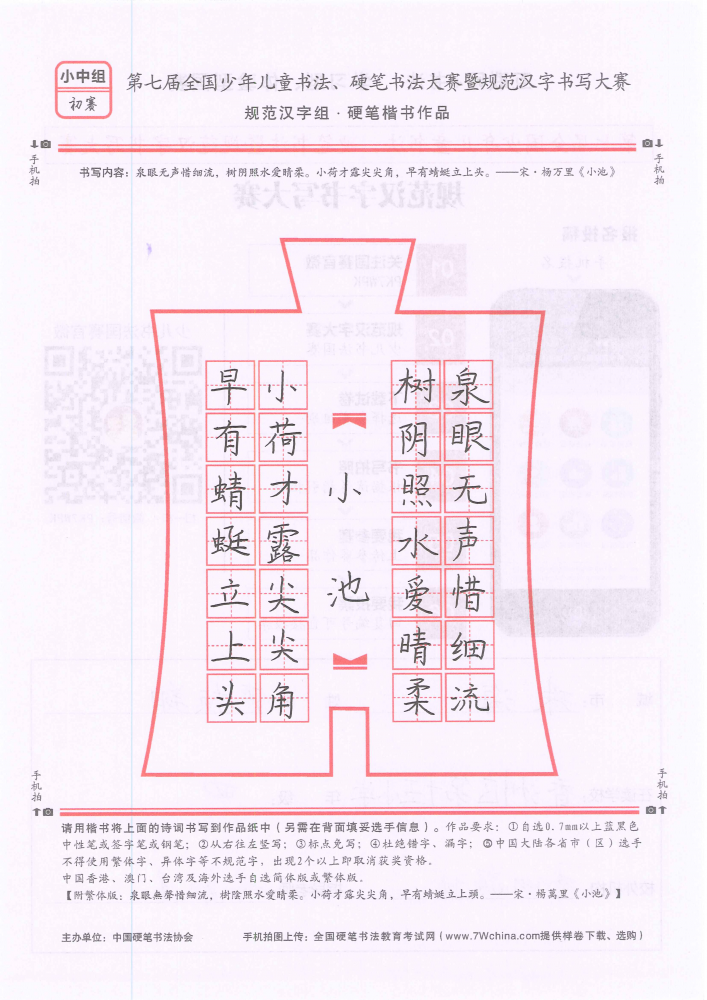 小中组
初赛
第七届全国少年儿童书法、硬笔书法大赛暨规范汉字书写大赛
规范汉字组·硬笔楷书作品
手机拍
手机拍
书写内容：泉眼无声惜细流，树阴照水爱晴柔。小荷才露尖尖角，早有蜻蜓立上头。——宋·杨万里《小池》
泉眼无声惜细流
树阴照水爱晴柔
小池
小荷才露尖尖角
早有蜻蜓立上头
手机拍
手机拍
请用楷书将上面的诗词书写到作品纸中（另需在背面填妥选手信息）。作品要求：①自选0.7mm以上蓝黑色
中性笔或签字笔或钢笔；②从右往左竖写；③标点免写；④杜绝错字、漏字；⑤中国大陆各省市（区）选手
不得使用繁体字、异体字等不规范字，出现2个以上即取消获奖资格。
中国香港、澳门、台湾及海外选手自选简体版或繁体版。
【附繁体版：泉眼無聲惜细流，樹陰照水爱晴柔。小荷才露尖尖角，早有蜻蜓立上頭。——宋·楊萬里《小池》】
主办单位：中国硬笔书法协会
手机拍图上传：全国硬笔书法教育考试网（www.7Wchina.com提供样卷下载、选购）